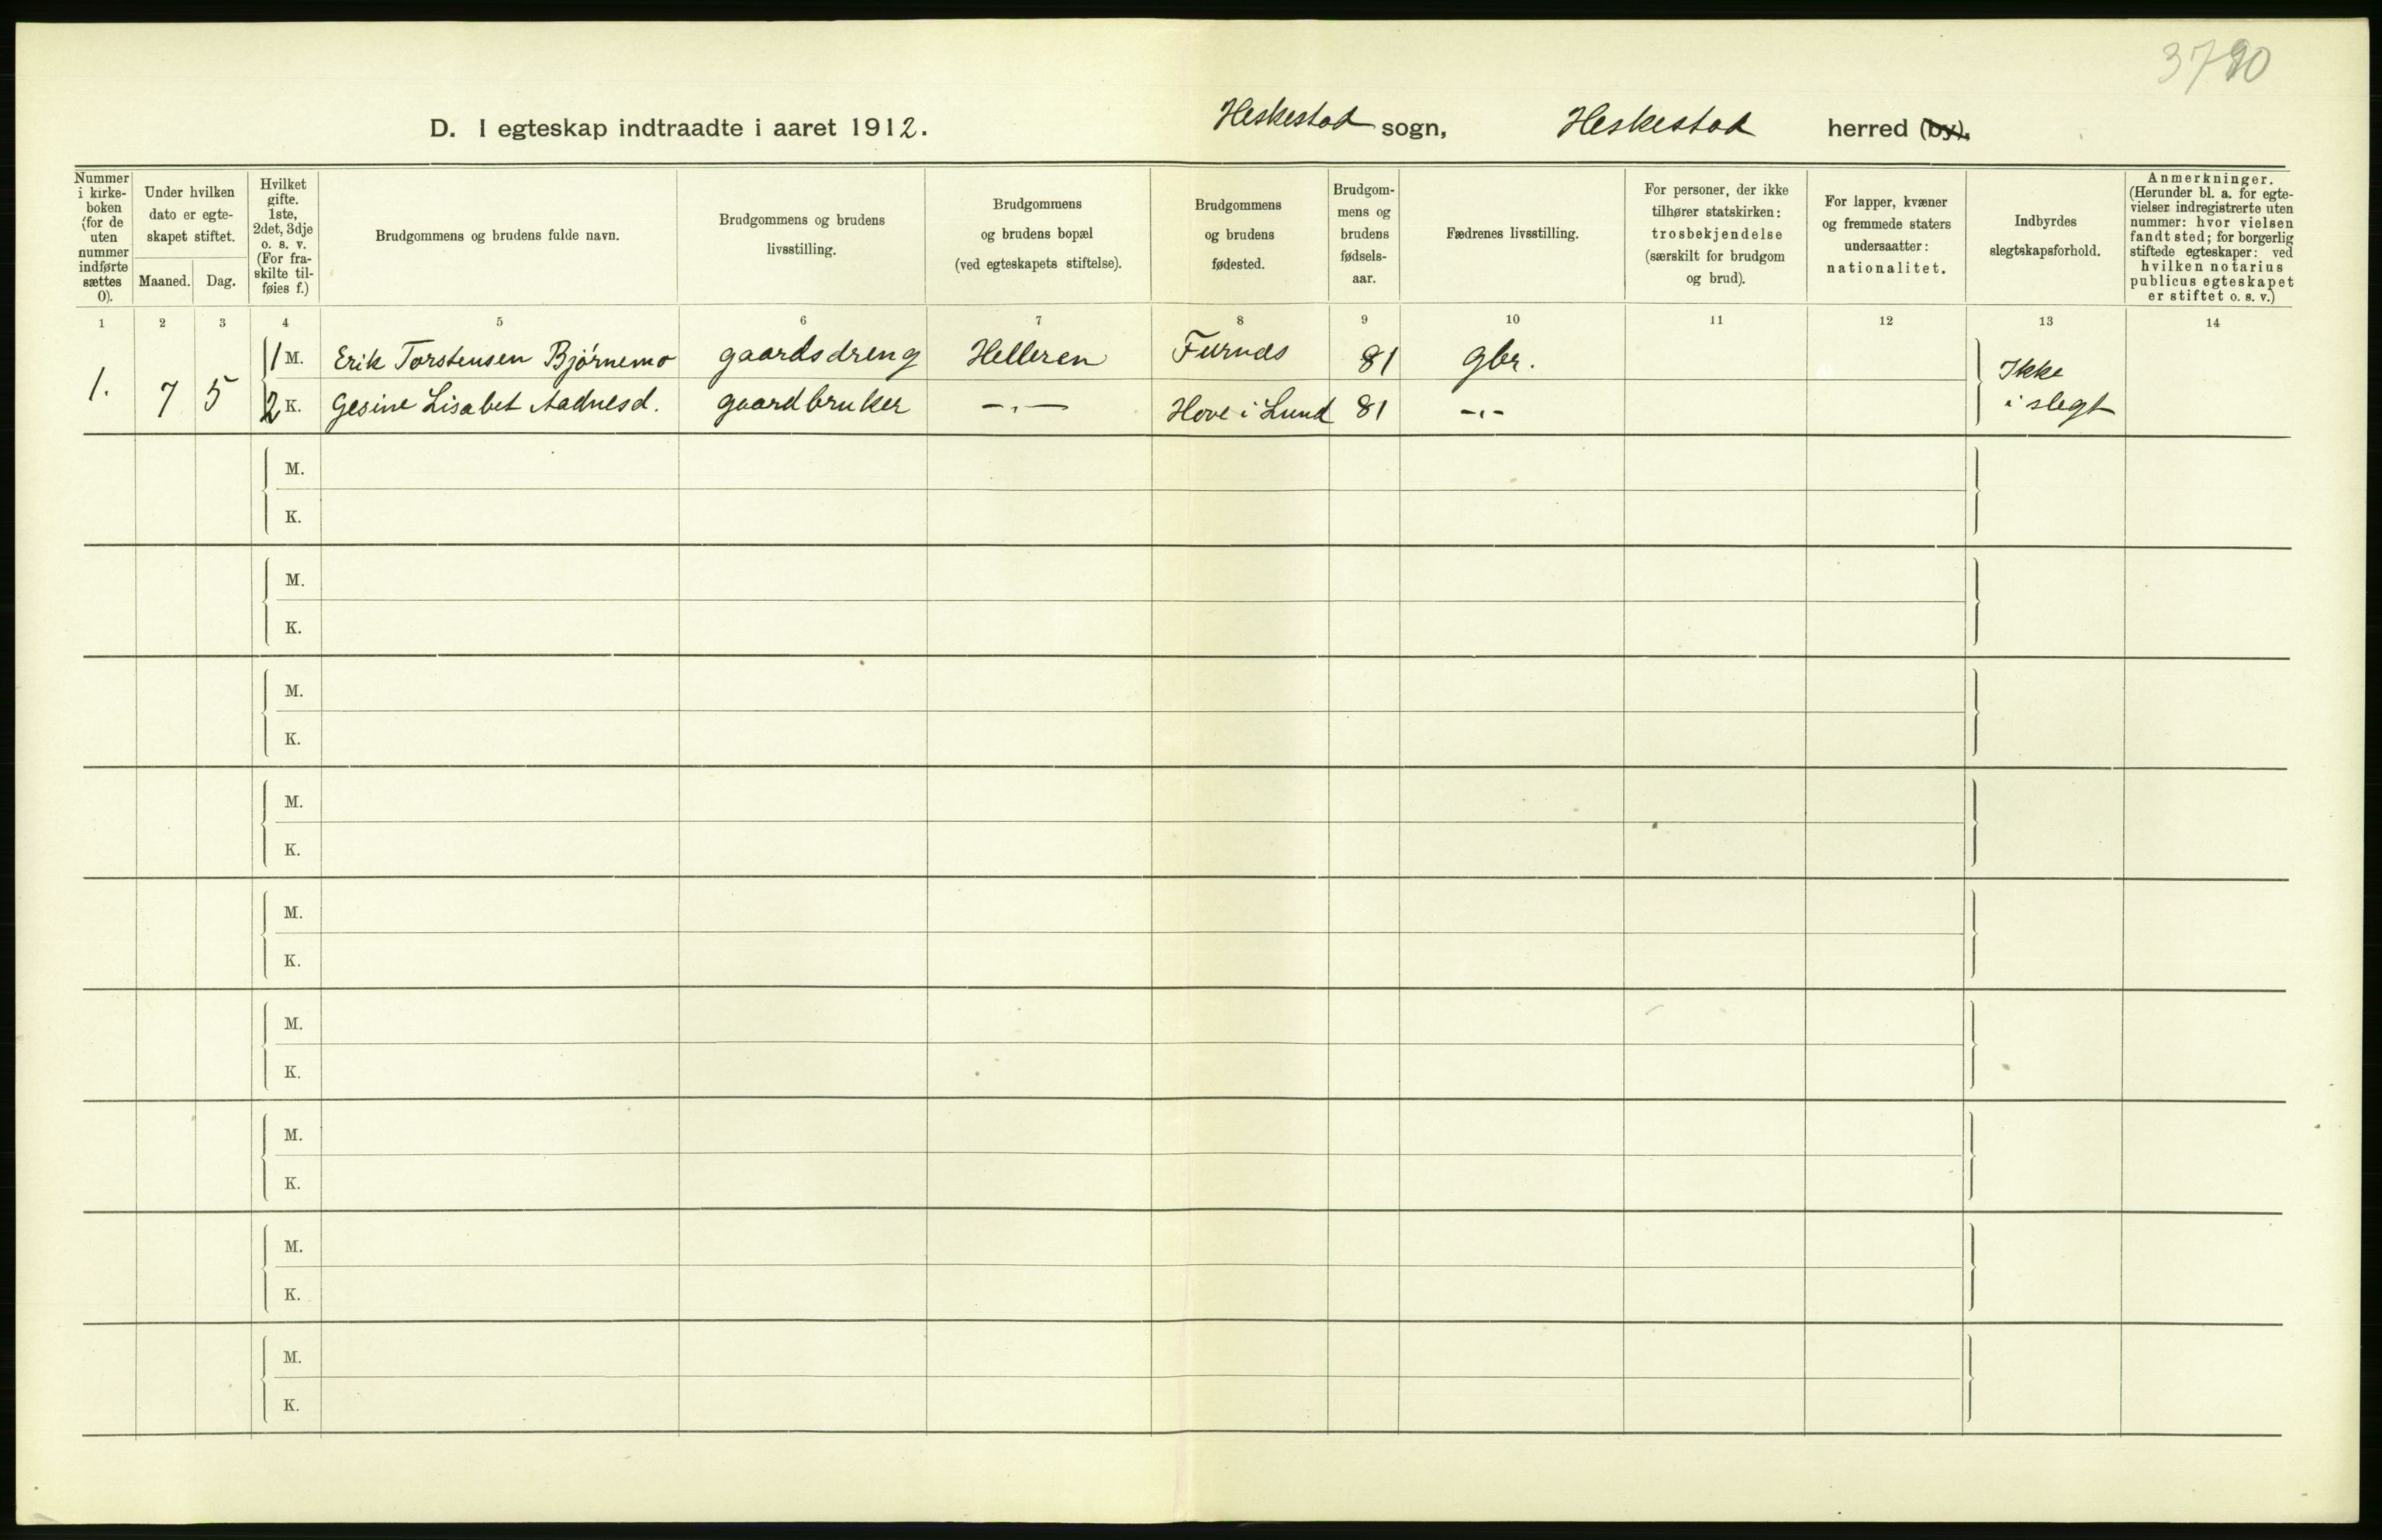 D. I egteskap indtraadte i aaret 1912. Heskestad sogn, Heskestad herred (by).
Nummer i kirke-boken (for de uten nummer indførte sættes 0).
Under hvilken dato er egte-skapet stiftet.
Maaned. Dag.
Hvilket gifte. 1ste, 2det, 3dje o. s. v. (For fra-skilte til-føies f.)
Brudgommens og brudens fulde navn.
Brudgommens og brudens livsstilling.
Brudgommens og brudens bopæl (ved egteskapets stiftelse).
Brudgommens og brudens fødested.
Brudgom-mens og brudens fødsels-aar.
Fædrenes livsstilling.
For personer, der ikke tilhører statskirken: trosbekjendelse (særskilt for brudgom og brud).
For lapper, kvæner og fremmede staters undersaatter: nationalitet.
Indbyrdes slegtskapsforhold.
Anmerkninger. (Herunder bl. a. for egte-vielser indregistrerte uten nummer: hvor vielsen fandt sted; for borgerlig stiftede egteskaper: ved hvilken notarius publicus egteskapet er stiftet o. s. v.)
1 2 3 4 5 6 7 8 9 10 11 12 13 14
1. 7 5
1 M. Erik Torstensen Bjørnemo gaardsdreng Helleren Furnes 81 gbr. Ikke
2 K. Gesine Lisabet Aadnesd. gaardbruker —„— Hove i Lund 81 -„- i slegt
M.
K.
M.
K.
M.
K.
M.
K.
M.
K.
M.
K.
M.
K.
M.
K.
M.
K.